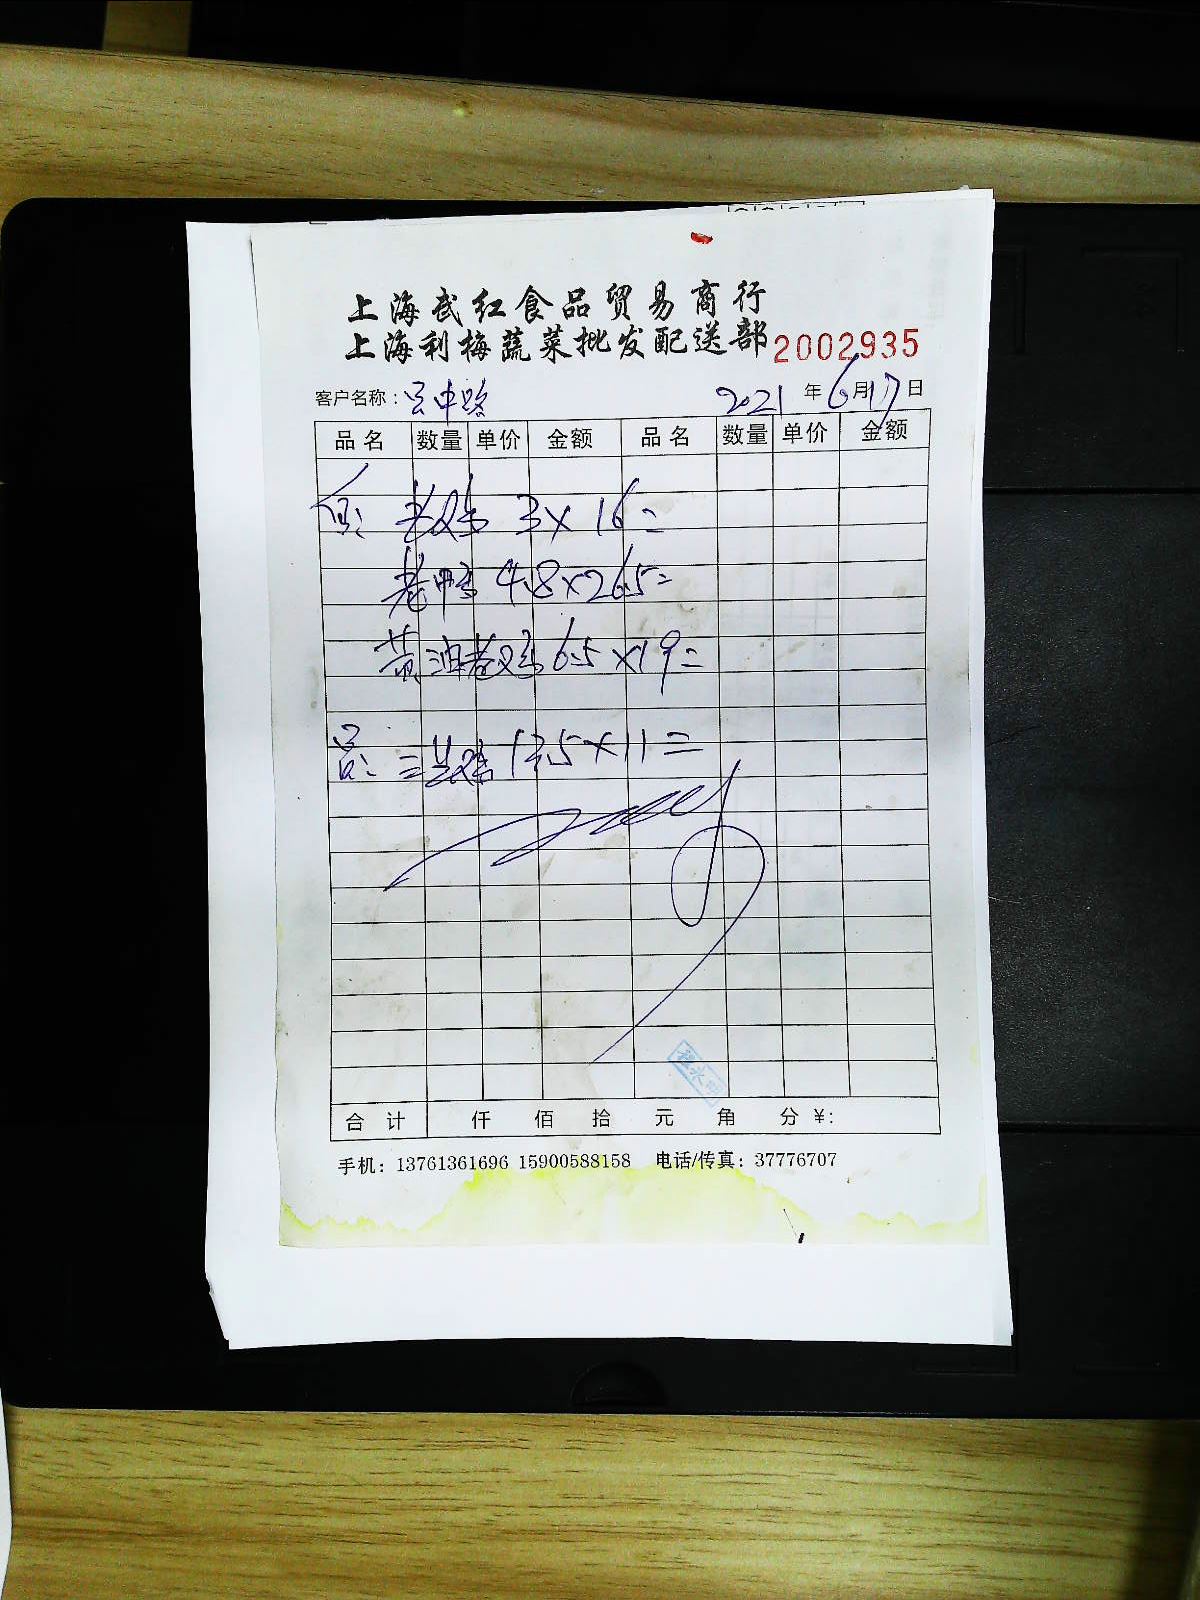 上海武红食品贸易商行
上海利梅蔬菜批发配送部 2002935
客户名称：吴中路 2021年6月17日
品名 数量 单价 金额 品名 数量 单价 金额
老鸡 3×16=
老鸭 4.8×26.5=
黄油老鸡 6.5×19=
三黄鸡 13.5×11=
合计 仟 佰 拾 元 角 分 ¥:
手机：13761361696 15900588158 电话/传真：37776707